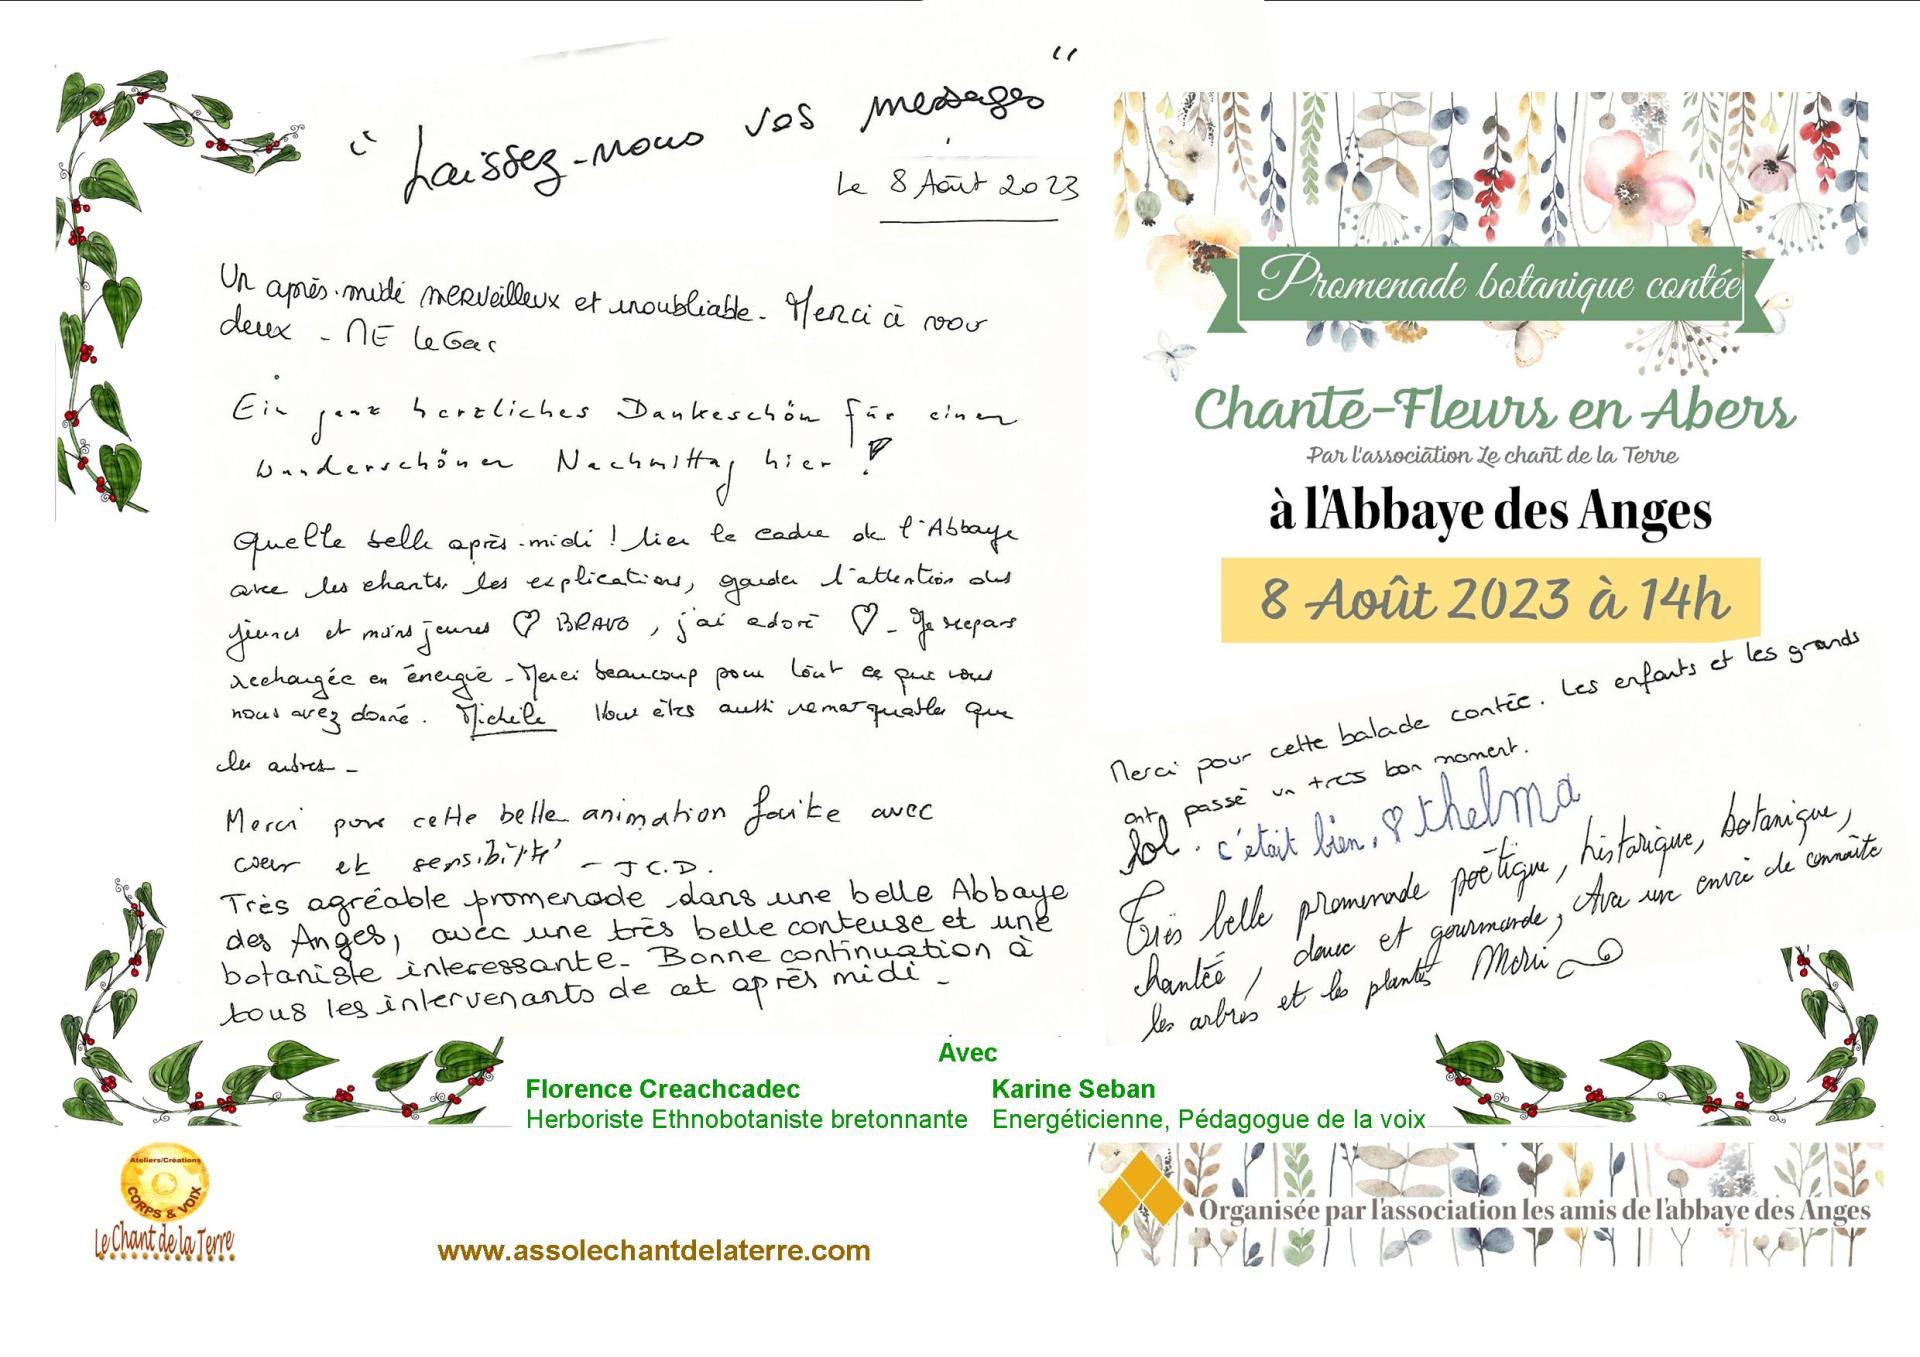 " Laissez-nous vos messages "
Le 8 Août 2023
Un après-midi merveilleux et inoubliable - Merci à vous
deux - ME LeGac
Ein ganz herzliches Dankeschön für einen
wunderschönen Nachmittag hier !
Quelle belle après-midi ! lier le cadre de l'Abbaye
avec les chants, les explications, garder l'attention des
jeunes et moins jeunes ♡ BRAVO, j'ai adoré ♡ - Je repars
rechargée en énergie - Merci beaucoup pour tout ce que vous
nous avez donné. Michèle Vous êtes aussi remarquables que
les autres -
Merci pour cette belle animation faite avec
cœur et sensibilité - J C.D.
Très agréable promenade dans une belle Abbaye
des Anges, avec une très belle conteuse et une
botaniste interessante - Bonne continuation à
tous les intervenants de cet après midi -
Promenade botanique contée
Chante-Fleurs en Abers
Par l'association Le chant de la Terre
à l'Abbaye des Anges
8 Août 2023 à 14h
Merci pour cette balade contée. Les enfants et les grands
ont passé un très bon moment.
lol. c'était bien. ♡ thelma
Très belle promenade poétique, historique, botanique,
chantée, douce et gourmande, Avec une envie de connaître
les arbres et les plantes Merci
Avec
Florence Creachcadec
Herboriste Ethnobotaniste bretonnante
Karine Seban
Energéticienne, Pédagogue de la voix
Ateliers/Créations
CORPS & VOIX
Le Chant de la Terre
www.assolechantdelaterre.com
Organisée par l'association les amis de l'abbaye des Anges